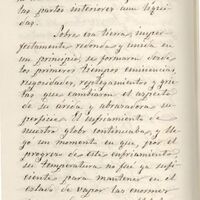 las partes interiores aun líquidas.
Sobre esa tierra, imperfectamente redonda y unida en
un principio, se formaron desde
los primeros tiempos eminencias,
rugosidades, replegamientos y grietas que cambiaron el aspecto
de su árida y abrasadora superficie. El enfriamiento de
nuestro globo continuaba, y llegó un momento en que, por el
progreso de este enfriamiento
su temperatura no fué ya suficiente para mantener en el
estado de vapor las enormes